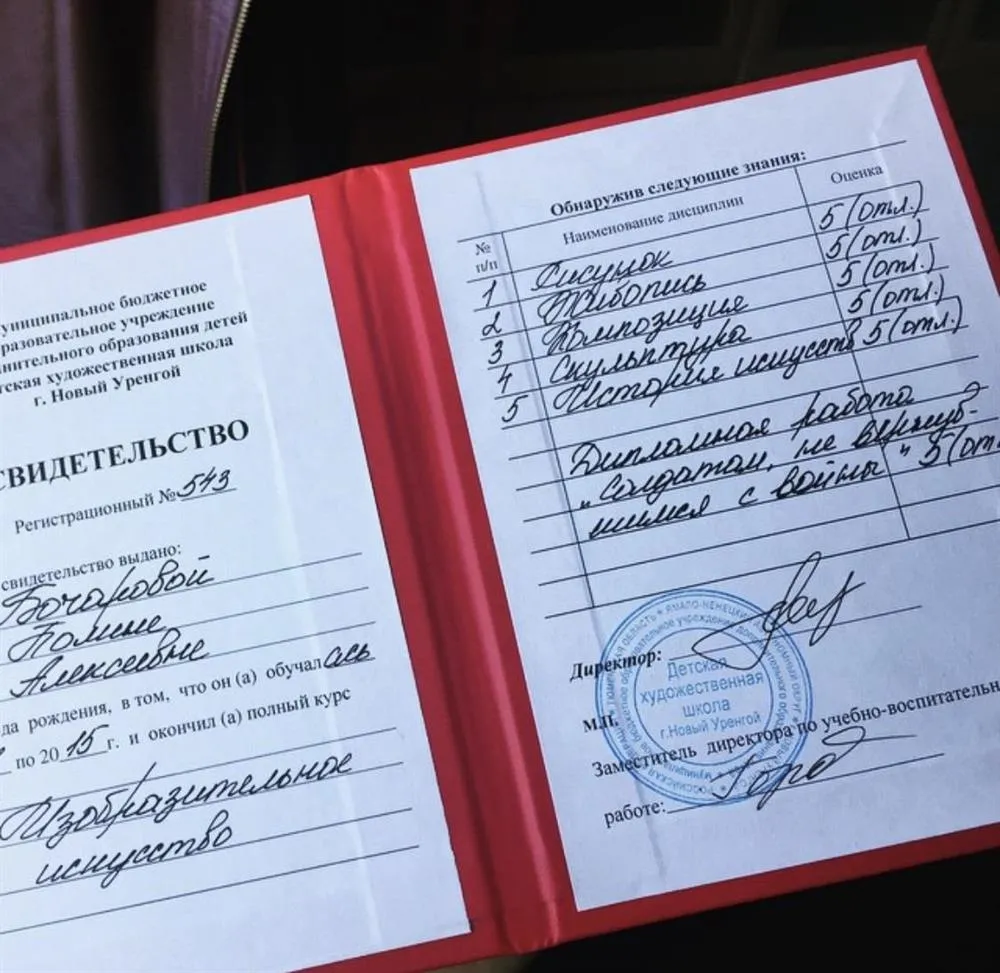 униципальное бюджетное
разовательное учреждение
нительного образования детей
тская художественная школа
г. Новый Уренгой
СВИДЕТЕЛЬСТВО
Регистрационный № 543
свидетельство выдано:
Бочаровой
Полине
Алексеевне
да рождения, в том, что он (а) обучалась
по 2015 г. и окончил (а) полный курс
Изобразительное
искусство
Обнаружив следующие знания:
№ п/п Наименование дисциплин Оценка
1 Рисунок 5 (отл.)
2 Живопись 5 (отл.)
3 Композиция 5 (отл.)
4 Скульптура 5 (отл.)
5 История искусств 5 (отл.)
Дипломная работа
„Солдатам, не вернув-
шимся с войны" 5 (от
Директор:
М.П.
Заместитель директора по учебно-воспитательн
работе:
Детская
художественная
школа
г.Новый Уренгой